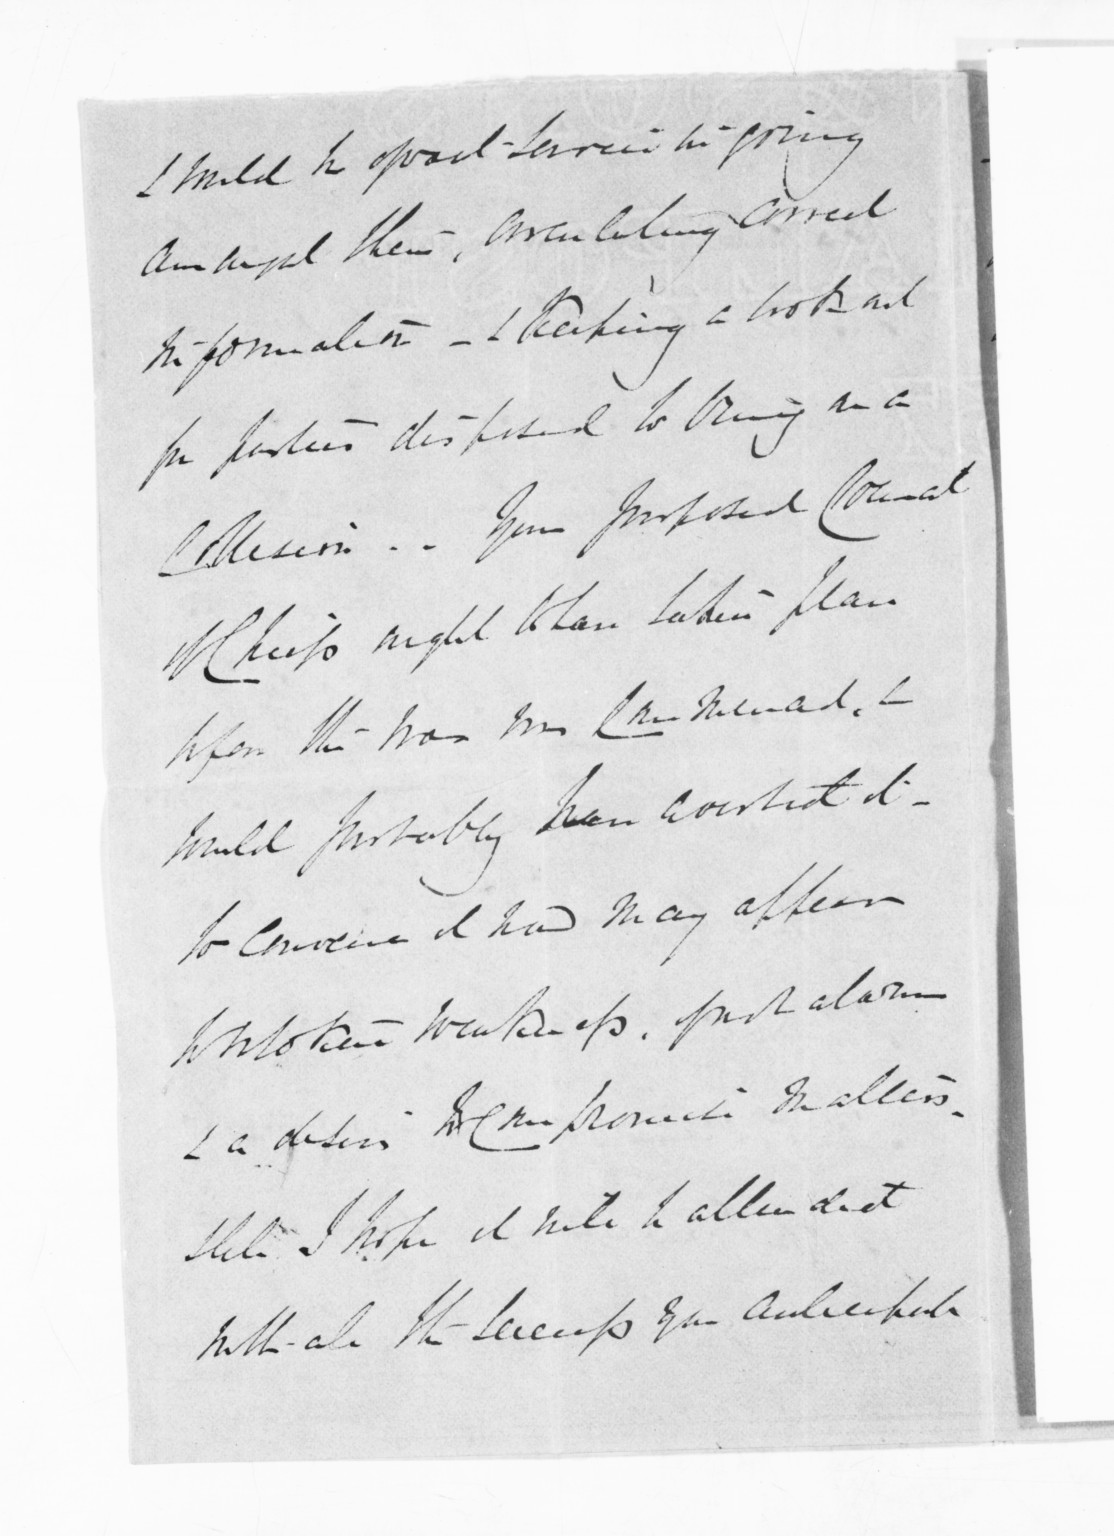 & would be of great service in going
amongst them, circulating correct
information - & keeping a look out
for parties disposed to bring on a
Collision .. Your proposed Council
of Chiefs ought to have taken place
before the war was commenced, &
would probably have averted it -
to convene it now may appear
to betoken weakness, great alarm
& a desire to Compromise matters.
Still I hope it will be attended
with all the success you anticipate